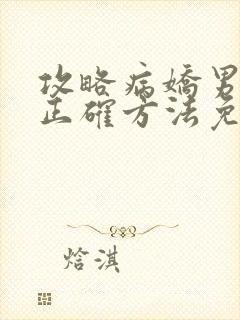 攻略病嬌男
正確方法免
焓淇